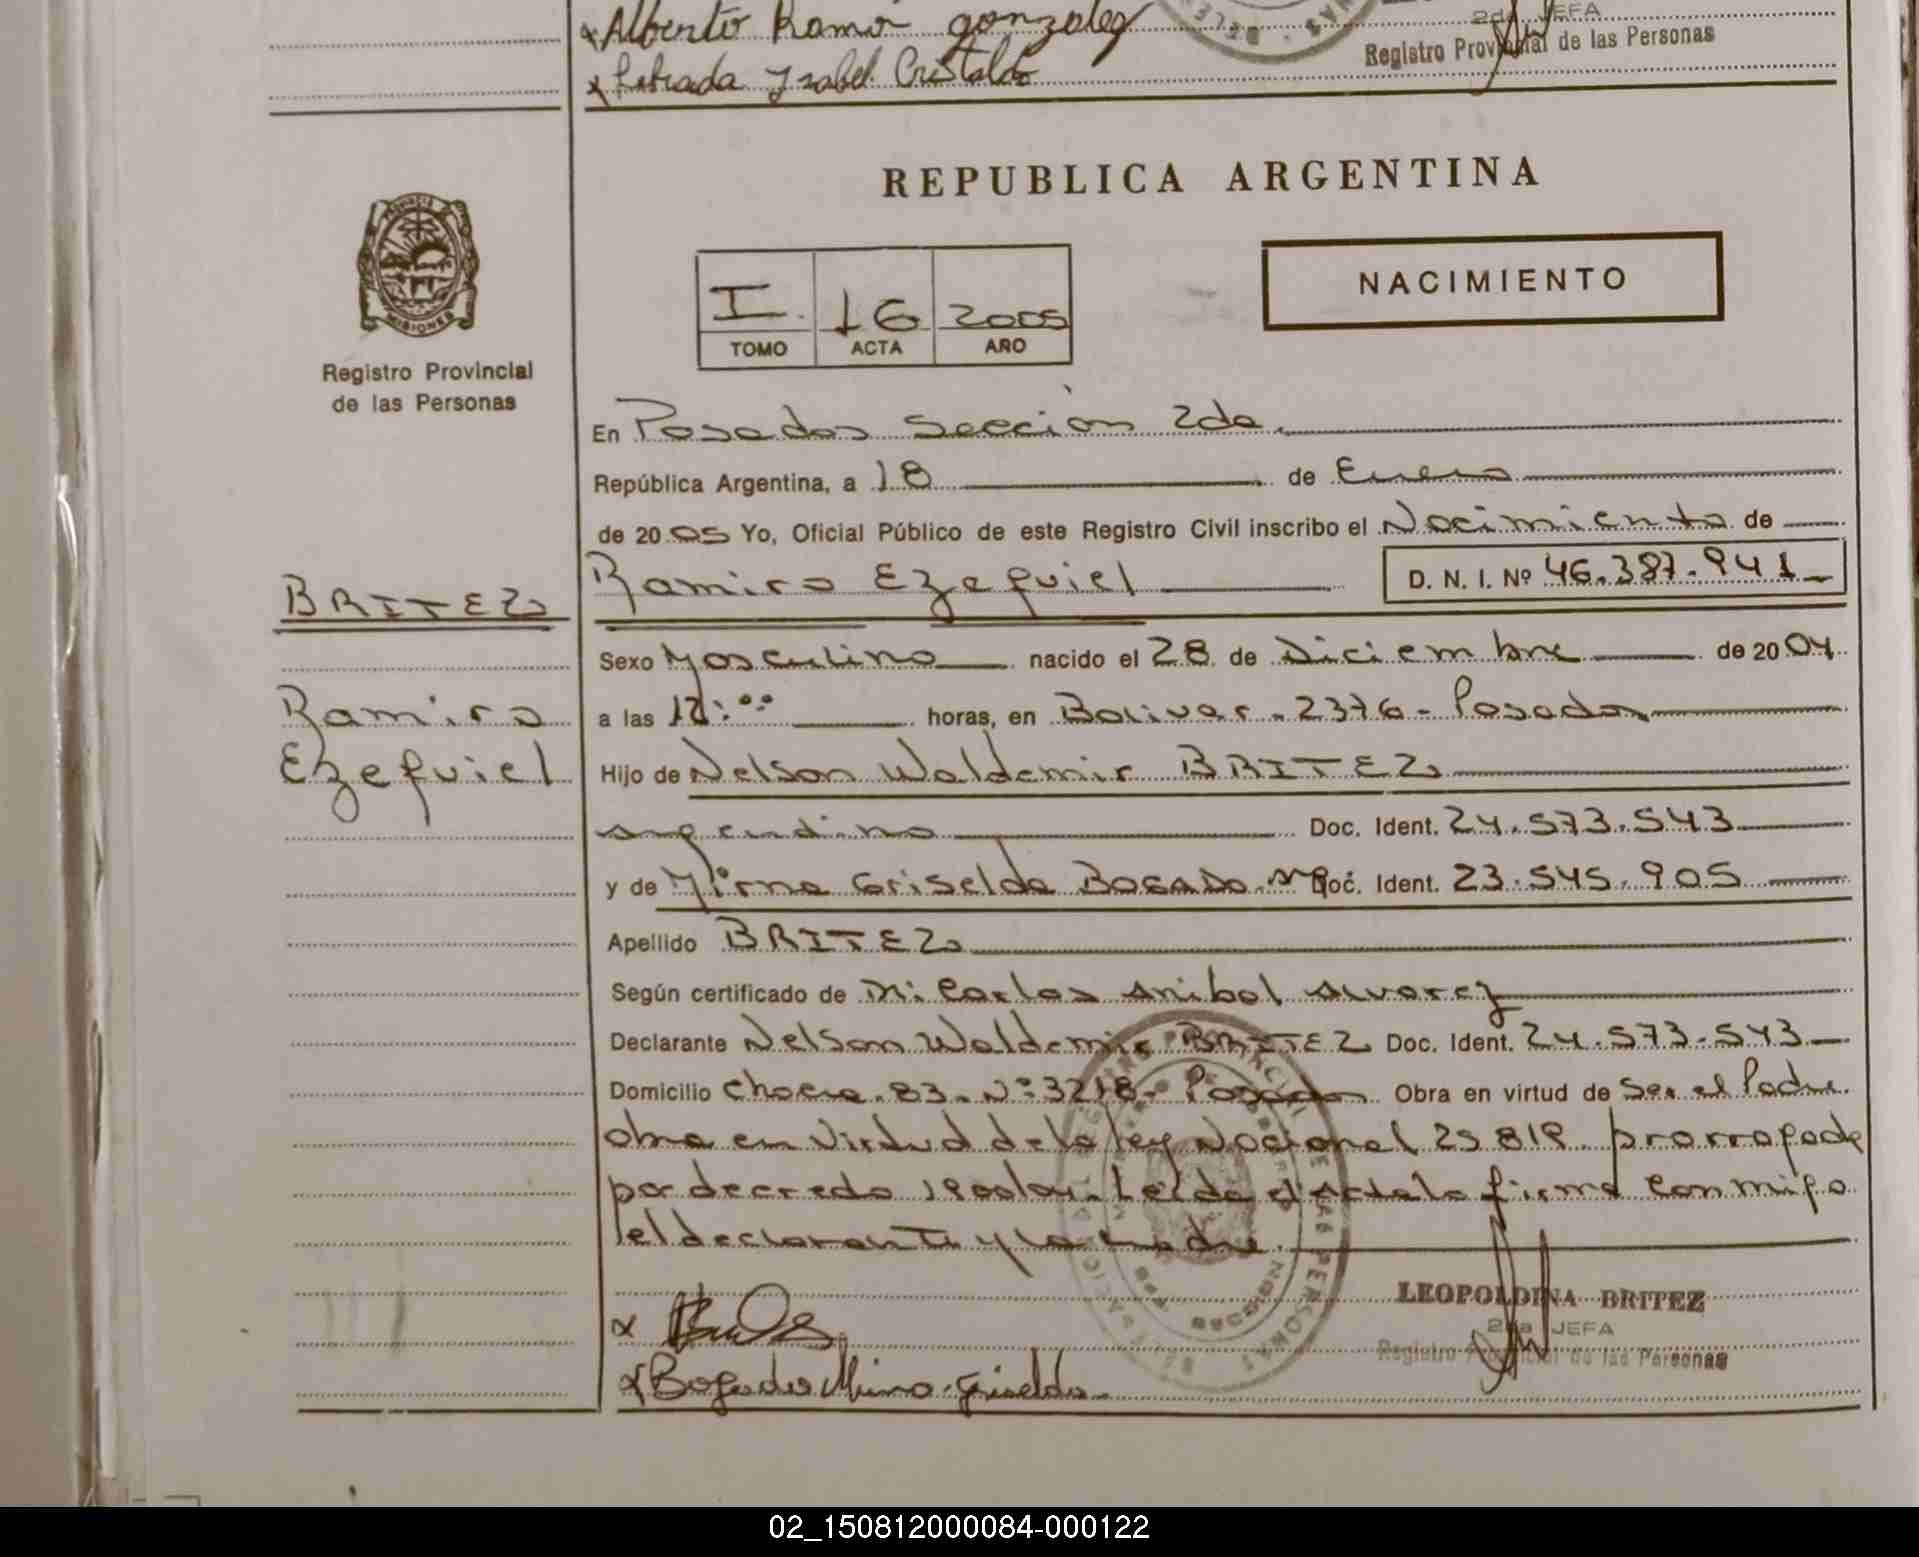 Alberto Ramó gonzalez
Librada Ysabel Cristaldo
2da JEFA
Registro Provincial de las Personas
REPUBLICA ARGENTINA
NACIMIENTO
I. 16 2005
TOMO ACTA AÑO
PROVINCIA MISIONES
Registro Provincial
de las Personas
En Posadas Sección 2da.
República Argentina, a 18 de Enero
de 2005 Yo, Oficial Público de este Registro Civil inscribo el Nacimiento de
BRITEZ
Ramiro Ezequiel D. N. I. Nº 46.387.941
Sexo Masculino nacido el 28 de Diciembre de 2004
Ramiro
a las 12:00 horas, en Bolivar - 2376 - Posadas
Ezequiel
Hijo de Nelson Waldemir BRITEZ
argentino Doc. Ident. 24.573.543
y de Mirna Griselda BOGADO Doc. Ident. 23.545.905
Apellido BRITEZ
Según certificado de Carlos Anibal Alvarez
Declarante Nelson Waldemir BRITEZ Doc. Ident. 24.573.543
Domicilio Chacra 83 - Nº 3218 - Posadas Obra en virtud de Ser el Padre.
obra en virtud de la ley Nacional 25.819 prorrogada
por decreto 1900/04. Leída el Acta la firma conmigo
el declarante y la madre.
LEOPOLDINA BRITEZ
2da JEFA
Registro Provincial de las Personas
Bogado Mirna Griselda
02_150812000084-000122